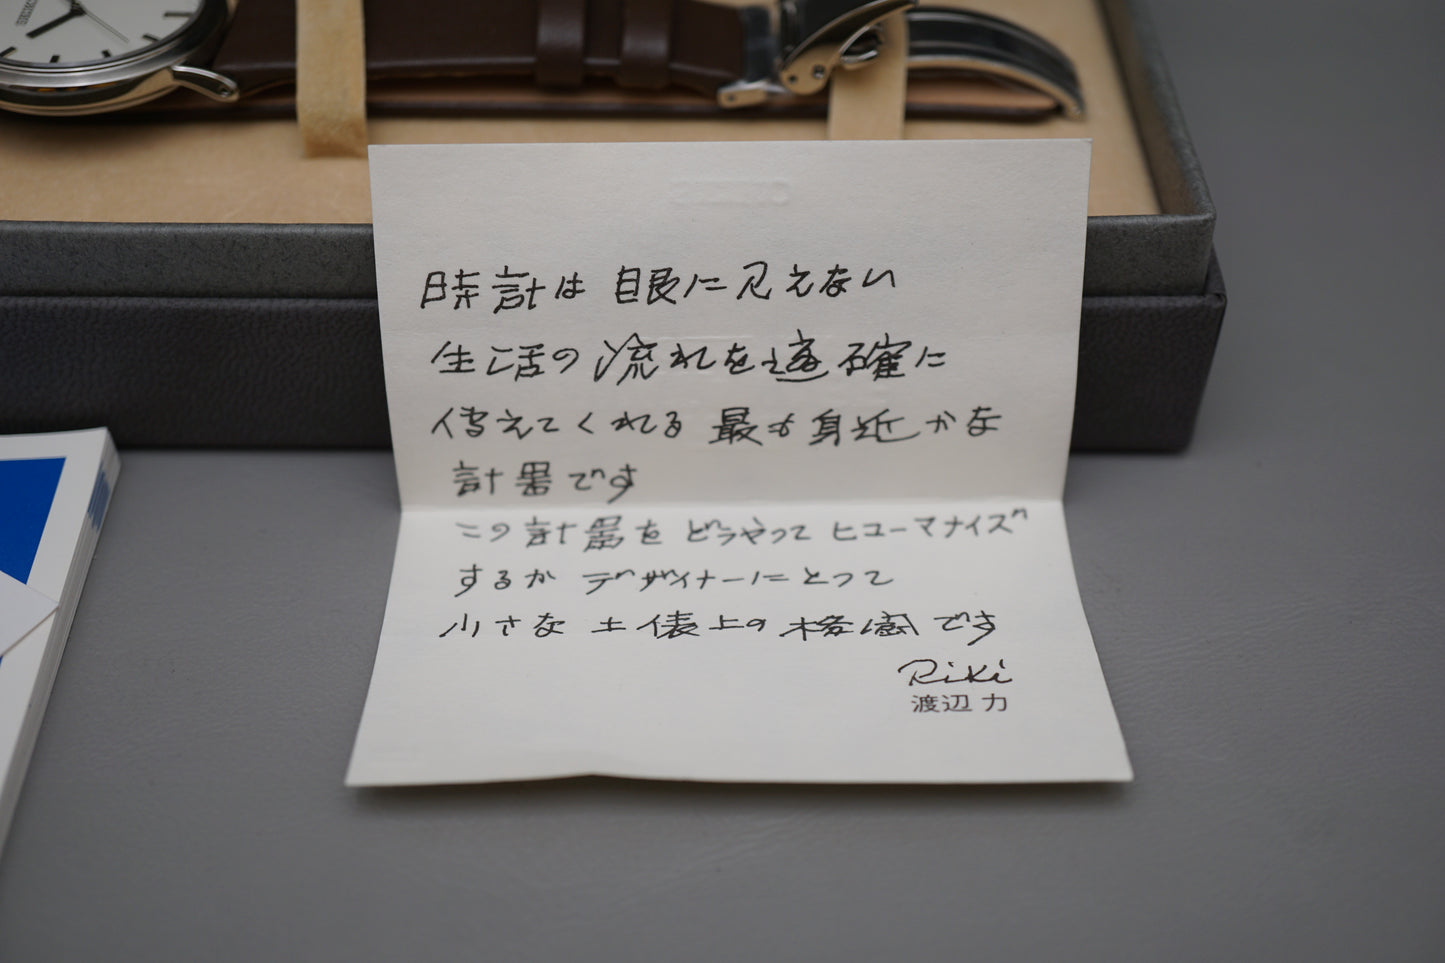 SEIKO
時計は 眼に見えない
生活の流れを適確に
伝えてくれる 最も身近かな
計器です
この計器を どうやって ヒューマナイズ
するか デザイナーにとって
小さな 土俵上の 格闘です
Riki
渡辺 力